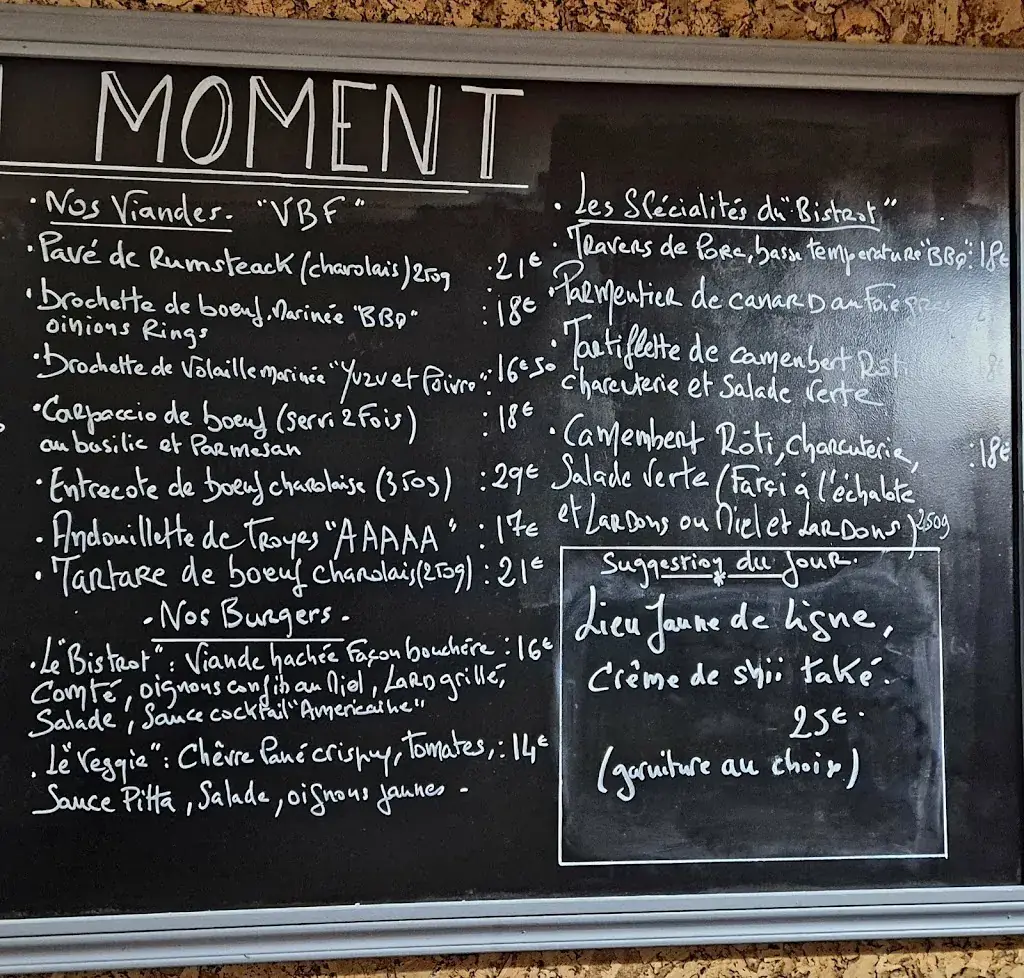 MOMENT
· Nos Viandes. "VBF"
· Pavé de Rumsteack (charolais) 250g : 21€
· brochette de boeuf, Marinée "BBQ" : 18€
oinions Rings
· brochette de Volaille marinée "Yuzu et Poivre" : 16€50
· Carpaccio de boeuf (servi 2 Fois) : 18€
au basilic et Parmesan
· Entrecote de boeuf charolaise (350g) : 29€
· Andouillette de Troyes "AAAAA" : 17€
· Tartare de boeuf charolais (250g) : 21€
· Nos Burgers ·
· Le "Bistrot" : Viande hachée Façon bouchère : 16€
Comté, oignons confits au Miel, Lard grillé,
Salade, Sauce cocktail "Américaine"
· Le "Veggie" : Chèvre Pané crispy, Tomates, : 14€
Sauce Pitta, Salade, oignons jaunes -
· Les Spécialités du "Bistrot"
· Travers de Porc, basse temperature "BBQ" : 18€
· Parmentier de canard au Foie gras
· Tartiflette de camenbert Roti 18€
charcuterie et Salade verte
· Camembert Rôti, Charcuterie, : 18€
Salade Verte (Farçi à l'échalote
et Lardons ou Miel et Lardons) 250g
Suggestion du Jour.
Lieu Jaune de Ligne,
Crème de shii také.
25€.
(garniture au choix)